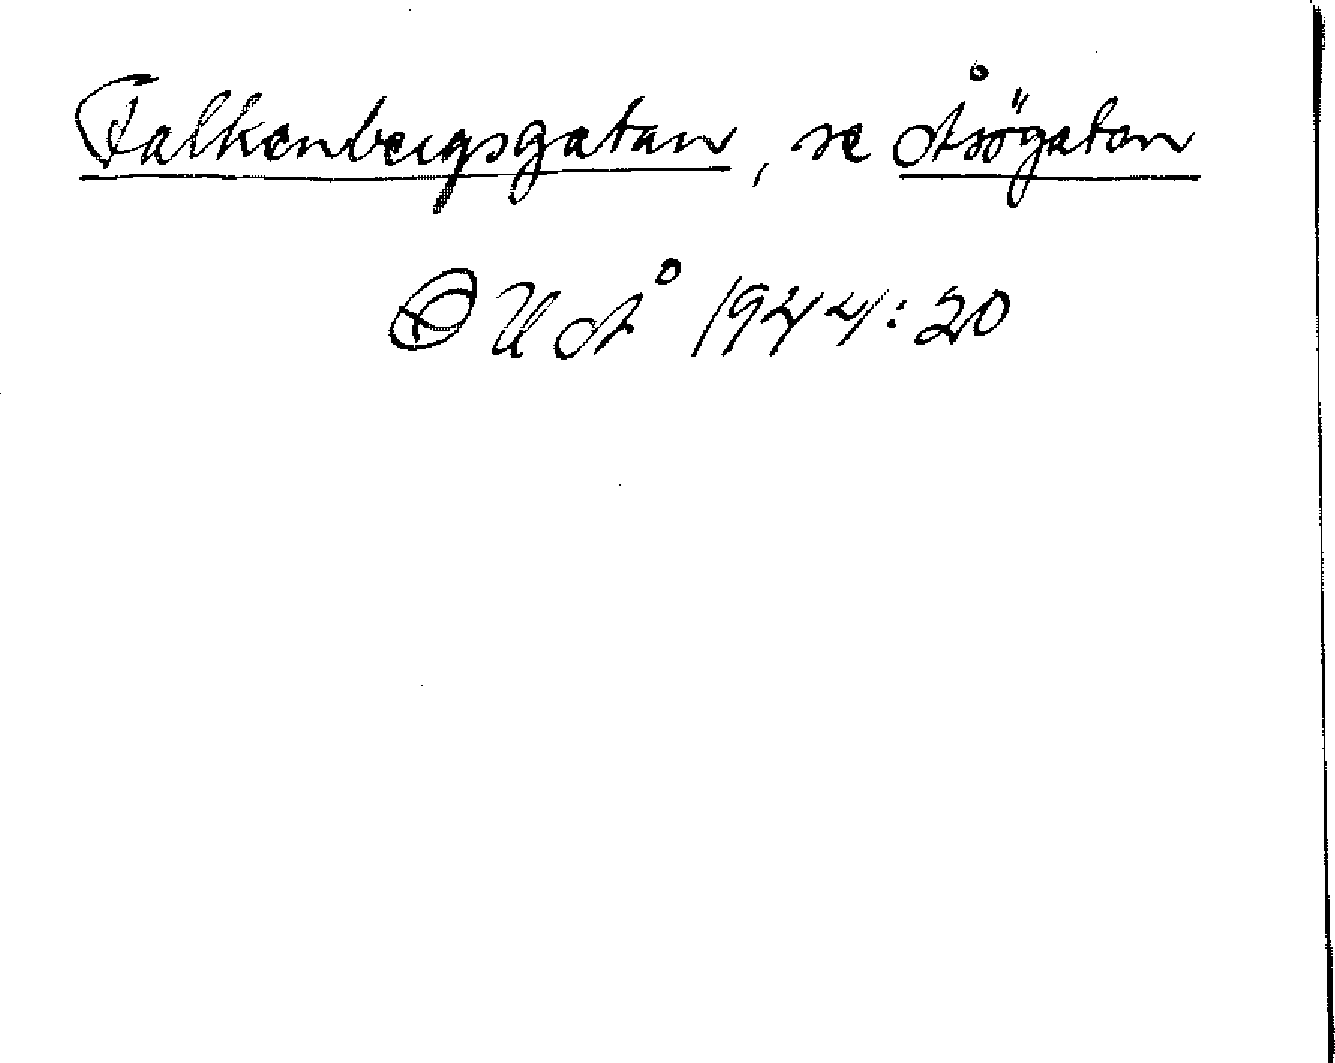 Falkenbergsgatan, se Åsögatan
OUÅ 1944:20